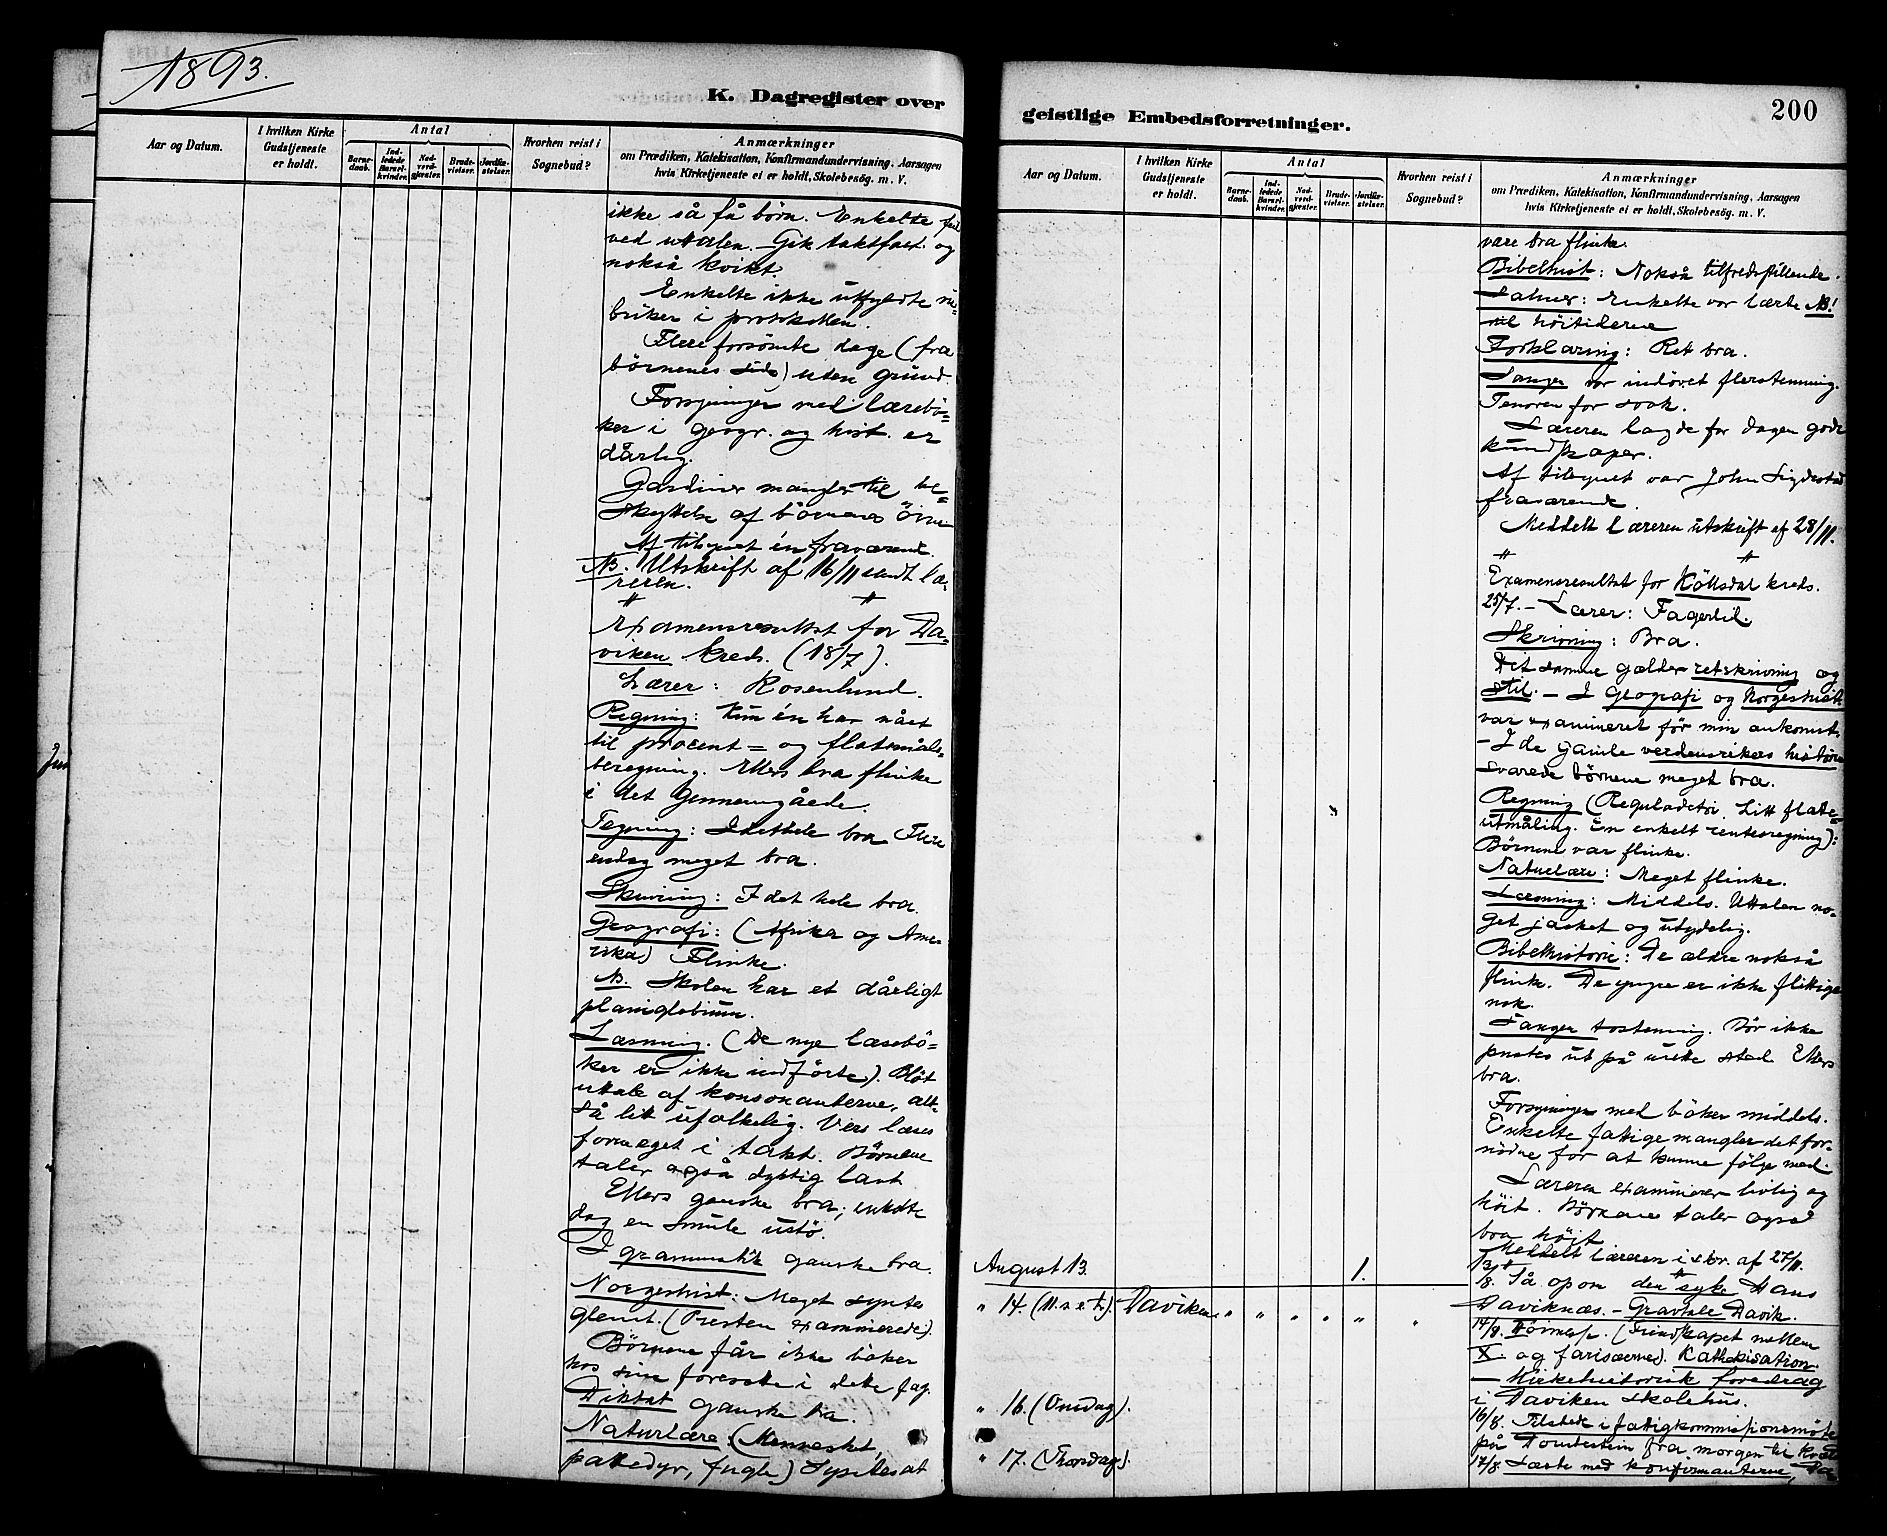 1893.
K. Dagregister over
Aar og Datum.
I hvilken Kirke Gudstjeneste er holdt.
Antal
Barne-daab.
Ind-ledede Barsel-kvinder.
Nad-verd-gjester.
Brude-vielser.
Jordfæ-stelser.
Hvorhen reist i Sognebud?
Anmærkninger
om Prædiken, Katekisation, Konfirmandundervisning, Aarsagen
hvis Kirketjeneste ei er holdt, Skolebesög. m. V.
ikke så få børn. Enkelte feil
ved uttalen. Gik taktfast og
nokså kvikt.
Enkelte ikke utfyldte ru=
briker i protokollen.
Flere forsömte dage (fra
börnenes side) uten grund.
Forsyningen med lærebö=
ker i geogr. og hist. er
dårlig.
Gardiner mangler til be=
skyttelse af börnenes öine
Af tilsynet én fraværende.
NB. Utskrift af 16/11 sendt læ-
reren.
〃 〃
Examensresultat for Da=
viken kreds. (18/7).
Lærer: Rosenlund.
Regning: Kun én har nået
til procent= og flatemåls-
beregning. Ellers bra flinke
i det gennemgåede.
Tegning: I det hele bra Flere
endog meget bra.
Skrivning: I det hele bra.
Geografi: (Afrika og Ame-
rika) Flinke.
NB. Skolen har et dårligt
planiglobium.
Læsning. (De nye læsebö=
ker er ikke indförte). Blöt
uttale af konsonanterne, alt-
så litt ufolkelig. Vers læses
formeget i takt. Börnene
taler også dygtig lavt
Ellers ganske bra; enkelte
dog en smule ustö.
I grammatik ganske bra.
Norgeshist: Meget syntes
glemt. (Presten examinerede).
Börnene får ikke böker
hos sine foresatte i dette fag.
Diktat ganske bra.
Naturlære (Mennesket,
pattedyr, fugle) Syntes at
Jun
geistlige Embedsforretninger.
200
Aar og Datum.
I hvilken Kirke Gudstjeneste er holdt.
Antal
Barne-daab.
Ind-ledede Barsel-kvinder.
Nad-verd-gjester.
Brude-vielser.
Jordfæ-stelser.
Hvorhen reist i Sognebud?
Anmærkninger
om Prædiken, Katekisation, Konfirmandundervisning, Aarsagen
hvis Kirketjeneste ei er holdt, Skolebesög. m. V.
være bra flinke.
Bibelhist: Nokså tilfredsstillende.
Salmer: Enkelte var lærte NB!
til höitiderne
Forklaring: Ret bra.
Sangen var indövet flerstemmig.
Tenoren for svak.
Læreren lagde for dagen gode
kundskaper.
Af tilsynet var John Sigdestad
fraværende.
Meddelt læreren utskrift af 28/11.
〃 〃
Examensresultat for Köllsdal kreds.
25/7. - Lærer: Fagerlil.
Skrivning: Bra.
Det samme gælder retskrivning og
stil. - I Geografi og Norgeshist
var examineret för min ankomst.
- I de gamle verdensrikers historie
svarede börnene meget bra.
Regning (Reguladetri. Litt flate=
utmåling. En enkelt rentesregning):
Börnene var flinke.
Naturlære: Meget flinke.
Læsning: Middels. Uttalen no-
get jasket og utydelig.
Bibelhistorie: De ældre nokså
flinke. De yngre er ikke flittige
nok.
Sangen tostemmig. Bör ikke
pustes ut på urette sted Ellers
bra.
Forsyningen med böker middels.
Enkelte fattige mangler det for-
nödne for at kunne fölge med.
Læreren examinerer livlig og
höit. Börnene taler også
bra höit
Meddelt læreren i skr. af 27/11.
August 13. 1. 13/8. Så op om den syke Hans
Daviknæs. - Gravtale Davik.
" 14. (11. s. e. tr). Daviken " " " " " " 14/8. Höimesse. (Fiendskapet mellem
X. og farisæerne). Kathekisation.
- Kirkehistorisk foredrag
i Daviken skolehus.
" 16. (Onsdag). 16/8. Tilstede i fattigkommissionsmöte
på fra morgen til kveld
" 17. (Thorsdag). 17/8. Læste med konfirmanterne, Da